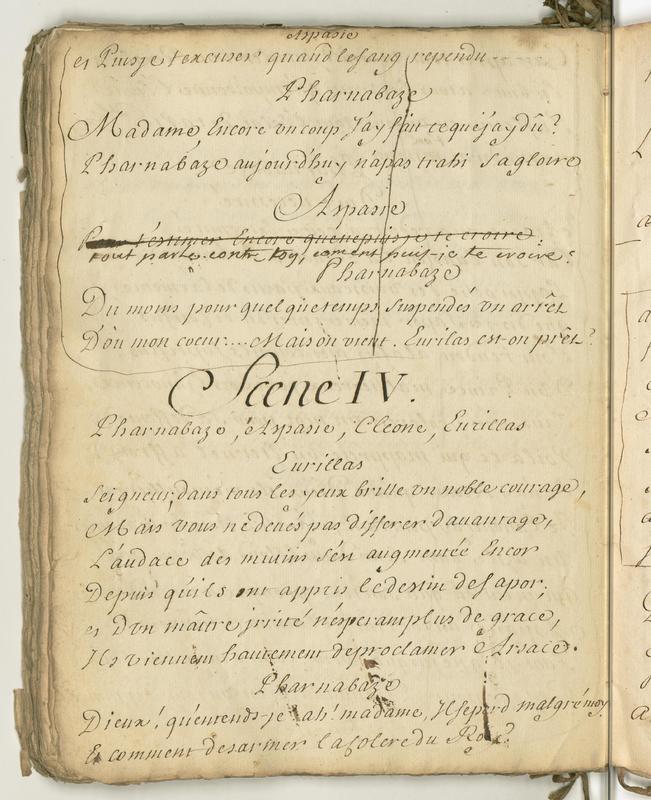 Aspasie
et Puis je t'excuser quand le sang rependu
Pharnabaze
Madame, Encore un coup J'ay fait ce que j'ay dû?
Pharnabaze aujourd'huy n'a pas trahi sa gloire
Aspasie
Pour t'estimer Encore que ne puis je te croire.
tout parle contre toy, coment puis-je te croire?
Pharnabaze
Du moins pour quelque temps Suspendés un arrêt
D'où mon coeur.... Mais on vient. Eurilas est-on prêt?
Scene IV.
Pharnabaze, Aspasie, Cleone, Eurillas
Eurillas
Seigneur, dans tous les yeux brille un noble courage,
Mais vous ne devés pas differer davantage,
L'audace des mutins s'est augmentée Encor
Depuis qu'ils ont appris le destin de sapor;
et D'un maître jrrité n'esperant plus de grace,
Ils viennent hautement de proclamer Arsace.
Pharnabaze
Dieux! qu'entends-je ah! madame, Il se perd malgré moy.
Et comment desarmer la Colere du Roi?